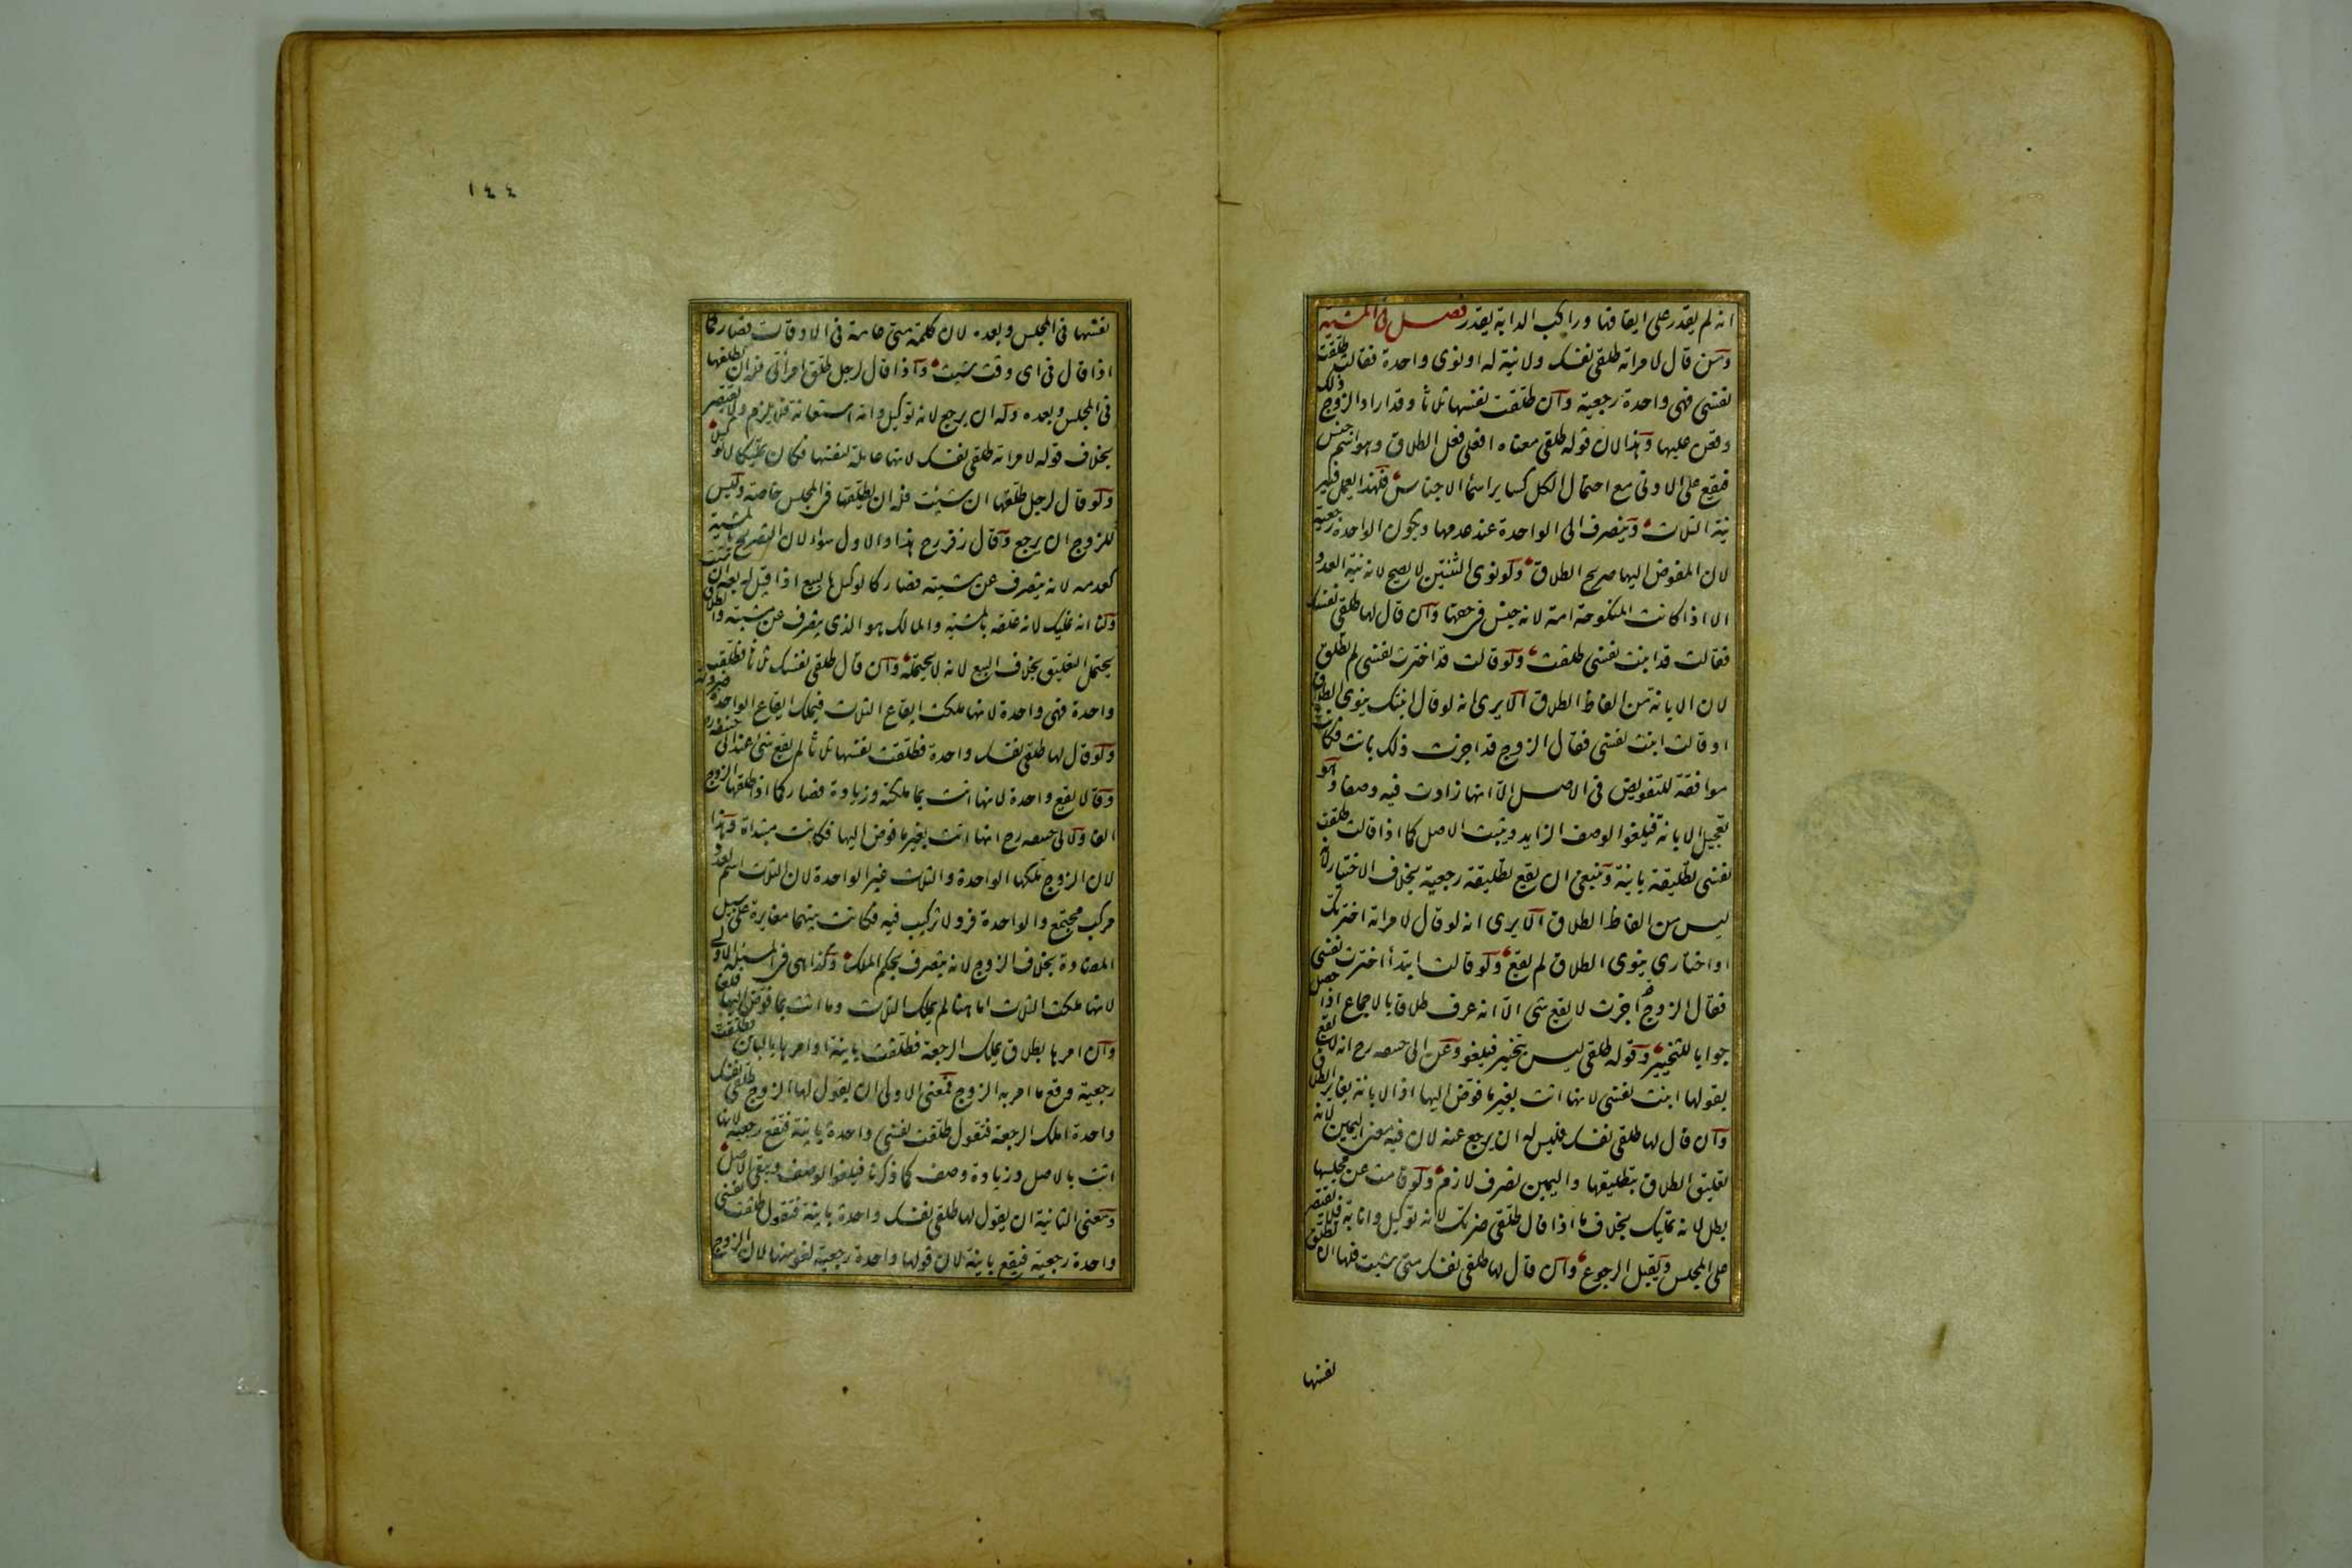 انه لم يقدر على ايقافها وراكب الدابة يقدر فصل فى المشية
ومن قال لامراته طلقى نفسك ولا نية له او نوى واحدة فقالت طلقت
نفسى فهى واحدة رجعية وان طلقت نفسها ثلاثا وقد اراد الزوج ذلك
وقعن عليها وهذا لان قوله طلقى معناه افعلى فعل الطلاق وهو اسم جنس
فيقع على الادنى مع احتمال الكل كساير اسما الاجناس فلهذا يعمل فيه
نية الثلاث وينصرف الى الواحدة عند عدمها ويكون الواحدة رجعية
لان المفوض اليها صريح الطلاق ولو نوى الثنتين لا يصح لانه نية العدد
الا اذا كانت المنكوحة امة لانه جنس فى حقها وان قال لها طلقى نفسك
فقالت قد ابنت نفسى طلقت ولو قالت قد اخترت نفسى لم تطلق
لان الابانة من الفاظ الطلاق الا يرى انه لو قال ابنتك ينوى الطلاق
او قالت ابنت نفسى فقال الزوج قد اجزت ذلك بانت فكانت
موافقة للتفويض فى الاصل الا انها زادت فيه وصفا وهو
تعجيل الابانة فيلغوا الوصف الزايد ويثبت الاصل كما اذا قالت طلقت
نفسى تطليقة باينة وينبغى ان تقع تطليقة رجعية بخلاف الاختيار لانه
ليس من الفاظ الطلاق الا يرى انه لو قال لامراته اخترتك
او اختارى ينوى الطلاق لم يقع ولو قالت ابتدأ اخترت نفسى
فقال الزوج اجزت لا يقع شى الا انه عرف طلاقا بالاجماع اذا حصل
جوابا للتخيير وقوله طلقى ليس بتخيير فيلغو وعن ابى حنيفه رح انه لا يقع
بقولها ابنت نفسى لانها اتت بغير ما فوض اليها اذ الابانة يغاير الطلاق
وان قال لها طلقى نفسك فليس له ان يرجع عنه لان فيه معنى اليمين لانه
تعليق الطلاق بتطليقها واليمين تصرف لازم ولو قامت عن مجلسها
بطل لانه تمليك بخلاف ما اذا قال طلقى ضرتك لانه توكيل وانابة فلا يقتصر
على المجلس ويقبل الرجوع وان قال لها طلقى نفسك متى شيت فلها ان تطلق
نفسها
١٤٤
نفسها فى المجلس وبعده لان كلمة متى عامة فى الاوقات فصار كما
اذا قال فى اى وقت شيت واذا قال لرجل طلق امرأتى فله ان يطلقها
فى المجلس وبعده وله ان يرجع لانه توكيل وانه استعانة فلا يلزم ولا يقتصر
بخلاف قوله لامراته طلقى نفسك لانها عاملة لنفسها فكان تمليكا لا توكيلا
ولو قال لرجل طلقها ان شيت فله ان يطلقها فى المجلس خاصة وليس
للزوج ان يرجع وقال زفر رح هذا والاول سواء لان التصريح بالمشية
كعدمه لانه يتصرف عن مشيته فصار كالوكيل بالبيع اذا قيل له بعه ان شيت
ولنا انه تمليك لانه علقه بالمشية والمالك هو الذى يتصرف عن مشيته والطلاق
يحتمل التعليق بخلاف البيع لانه لا يحتمله وان قال طلقى نفسك ثلاثا فطلقت
واحدة فهى واحدة لانها ملكت ايقاع الثلاث فيملك ايقاع الواحدة ضرورة
ولو قال لها طلقى نفسك واحدة فطلقت نفسها ثلاثا لم يقع شئ عند ابى حنيفة
وقالا يقع واحدة لانها اتت بما ملكته وزيادة فصار كما اذا طلقها الزوج
الفا ولابى حنيفه رح انها اتت بغير ما فوض اليها فكانت مبتداة وهذا
لان الزوج ملكها الواحدة والثلاث غير الواحدة لان الثلاث اسم لعدد
مركب مجتمع والواحدة فرد لا تركيب فيه فكانت بينهما مغايرة على سبيل
المضادة بخلاف الزوج لانه يتصرف بحكم الملك وكذا هى فى المسئلة الاولى
لانها ملكت الثلاث اما هنا لم يملك الثلاث وما اتت بما فوض اليها فلغا
وان امرها بطلاق يملك الرجعة فطلقت باينة او امرها بالباين فطلقت
رجعية وقع ما امر به الزوج فمعنى الاولى ان يقول لها الزوج طلقى نفسك
واحدة املك الرجعة فتقول طلقت نفسى واحدة باينة فتقع رجعية لانها
اتت بالاصل وزيادة وصف كما ذكرنا فيلغوا الوصف ويبقى الاصل
ومعنى الثانية ان يقول لها طلقى نفسك واحدة باينة فتقول طلقت نفسى
واحدة رجعية فيقع باينة لان قولها واحدة رجعية لغو منها لان الزوج